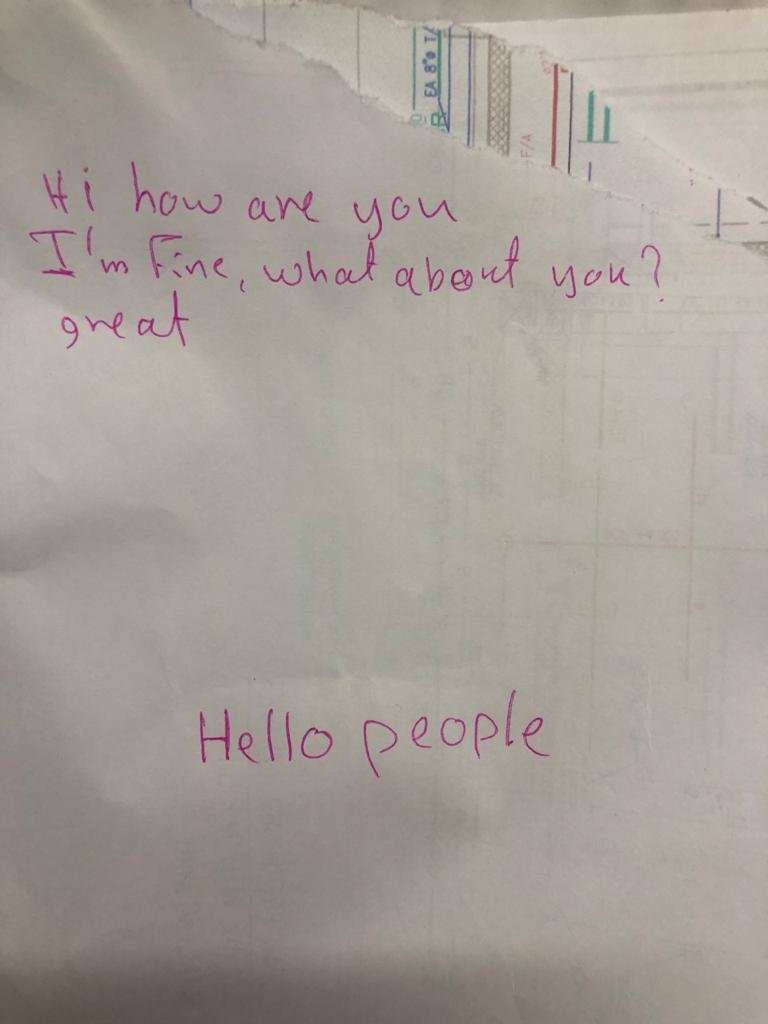 EA 8"ø T/
F/A
Hi how are you
I'm Fine, what about you?
great
Hello people